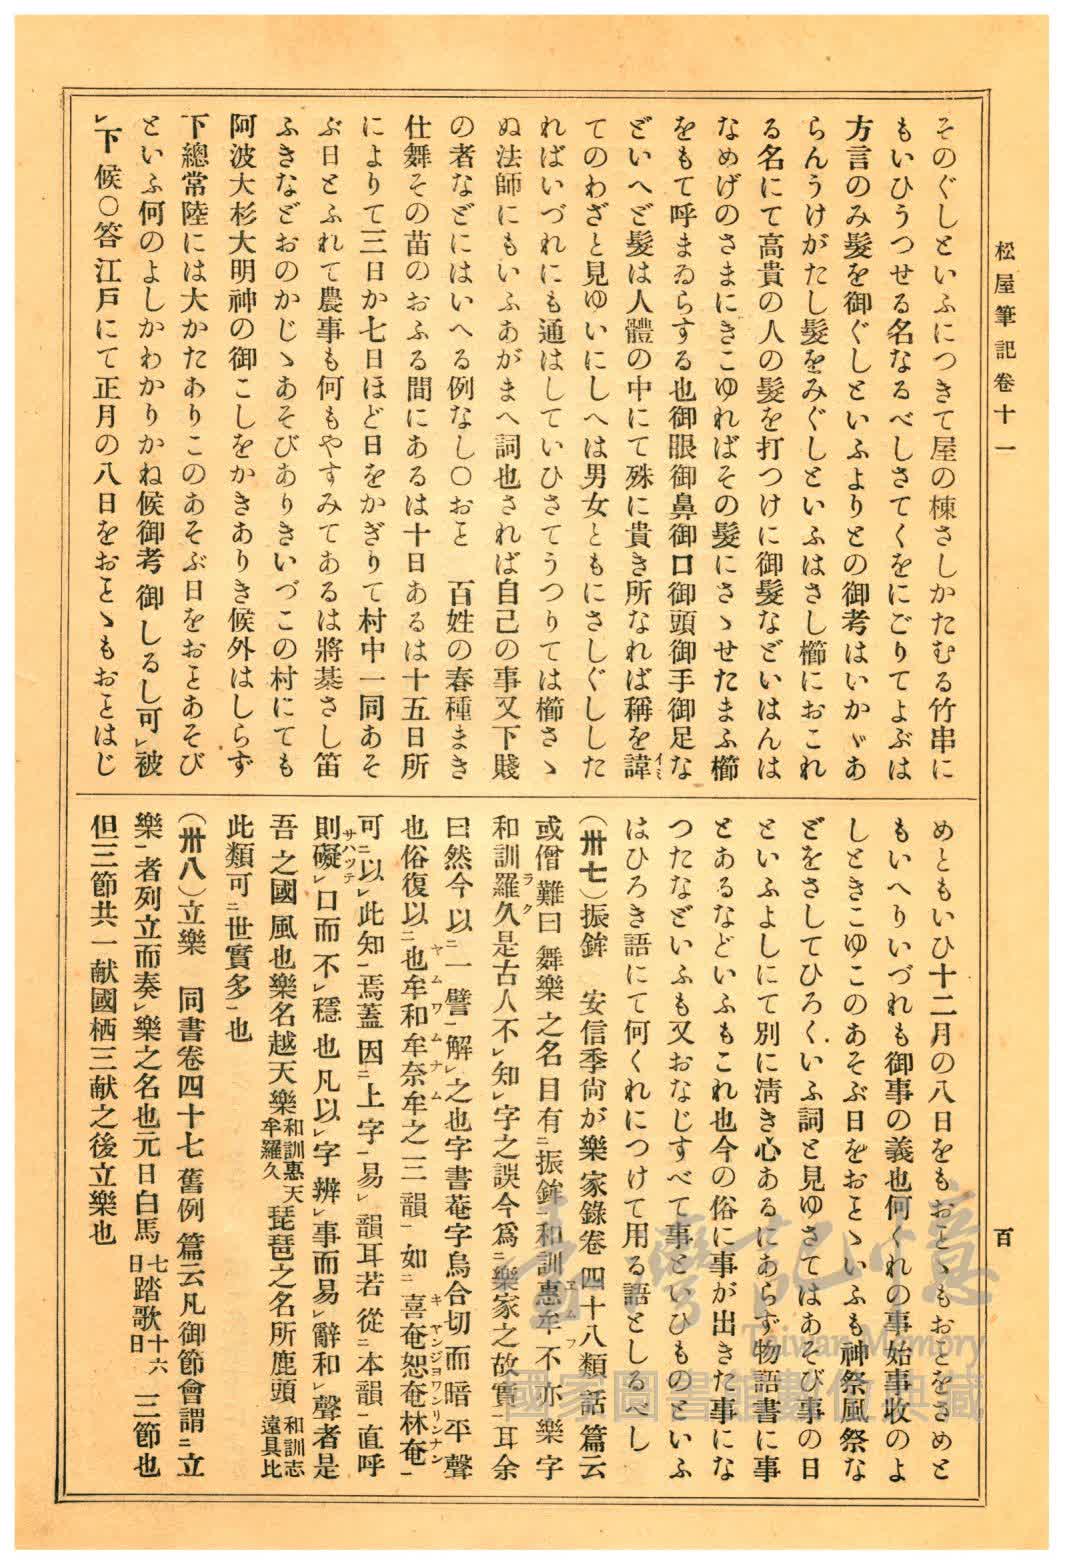 松屋筆記卷十一
百
そのぐしといふにつきて屋の棟さしかたむる竹串に
もいひうつせる名なるべしさてくをにごりてよぶは
方言のみ髮を御ぐしといふよりとの御考はいかゞあ
らんうけがたし髮をみぐしといふはさし櫛におこれ
る名にて高貴の人の髮を打つけに御髮などいはんは
なめげのさまにきこゆればその髮にさゝせたまふ櫛
をもて呼まゐらする也御眼御鼻御口御頭御手御足な
どいへど髮は人體の中にて殊に貴き所なれば稱を諱イミ
てのわざと見ゆいにしへは男女ともにさしぐしした
ればいづれにも通はしていひさてうつりては櫛さゝ
ぬ法師にもいふあがまへ詞也されば自己の事又下賤
の者などにはいへる例なし〇おと　百姓の春種まき
仕舞その苗のおふる間にあるは十日あるは十五日所
によりて三日か七日ほど日をかぎりて村中一同あそ
ぶ日とふれて農事も何もやすみてあるは將棊さし笛
ふきなどおのかじゝあそびありきいづこの村にても
阿波大杉大明神の御こしをかきありき候外はしらず
下總常陸には大かたありこのあそぶ日をおとあそび
といふ何のよしかわかりかね候御考御しるし可レ被
レ下候〇答江戸にて正月の八日をおとゝもおとはじ
めともいひ十二月の八日をもおとゝもおとをさめと
もいへりいづれも御事の義也何くれの事始事收のよ
しときこゆこのあそぶ日をおとゝいふも神祭風祭な
どをさしてひろくいふ詞と見ゆさてはあそび事の日
といふよしにて別に淸き心あるにあらず物語書に事
とあるなどいふもこれ也今の俗に事が出きた事にな
つたなどいふも又おなじすべて事といひものといふ
はひろき語にて何くれにつけて用る語としるべし
（卅七）振鉾　安信季尙が樂家錄卷四十八類話篇云
或僧難曰舞樂之名目有二振鉾一和訓惠牟エムフ不亦樂字
和訓羅久ラク是古人不レ知レ字之誤今爲二樂家之故實一耳余
曰然今以二一譬一解レ之也字書菴字烏合切而暗平聲
也俗復以二也牟和牟奈牟ヤムワムナム之三韻一如二喜菴恕菴林菴キヤンジヨワンリンナン一
可二以レ此知一焉蓋因二上字一易レ韻耳若從二本韻一直呼
則礙サハツテレ口而不レ穩也凡以レ字辨レ事而易レ辭和レ聲者是
吾之國風也樂名越天樂和訓惠天牟羅久琵琶之名所鹿頭和訓志遠具比
此類可二世實多一也
（卅八）立樂　同書卷四十七舊例篇云凡御節會謂二立
樂一者列立而奏レ樂之名也元日白馬七日踏歌十六日三節也
但三節共一献國栖三献之後立樂也
臺灣記憶
Taiwan Memory
國家圖書館數位典藏